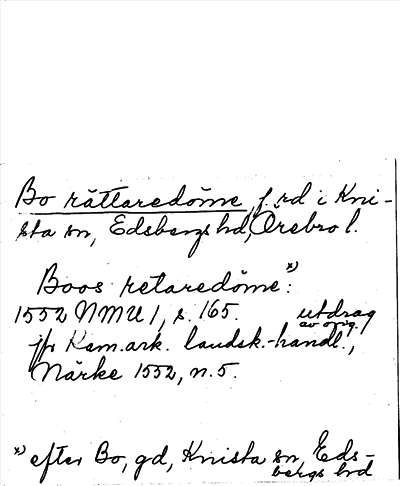 Bo rättaredöme, f. rd i Kni-
sta sn, Edsbergs hd, Örebro l.
Boos retaredöme*):
1552 NMU 1, s. 165. utdrag
av orig.
jfr Kam.ark. landsk.-handl.,
Närke 1552, n. 5.
*) efter Bo, gd, Knista sn, Eds-
bergs hd